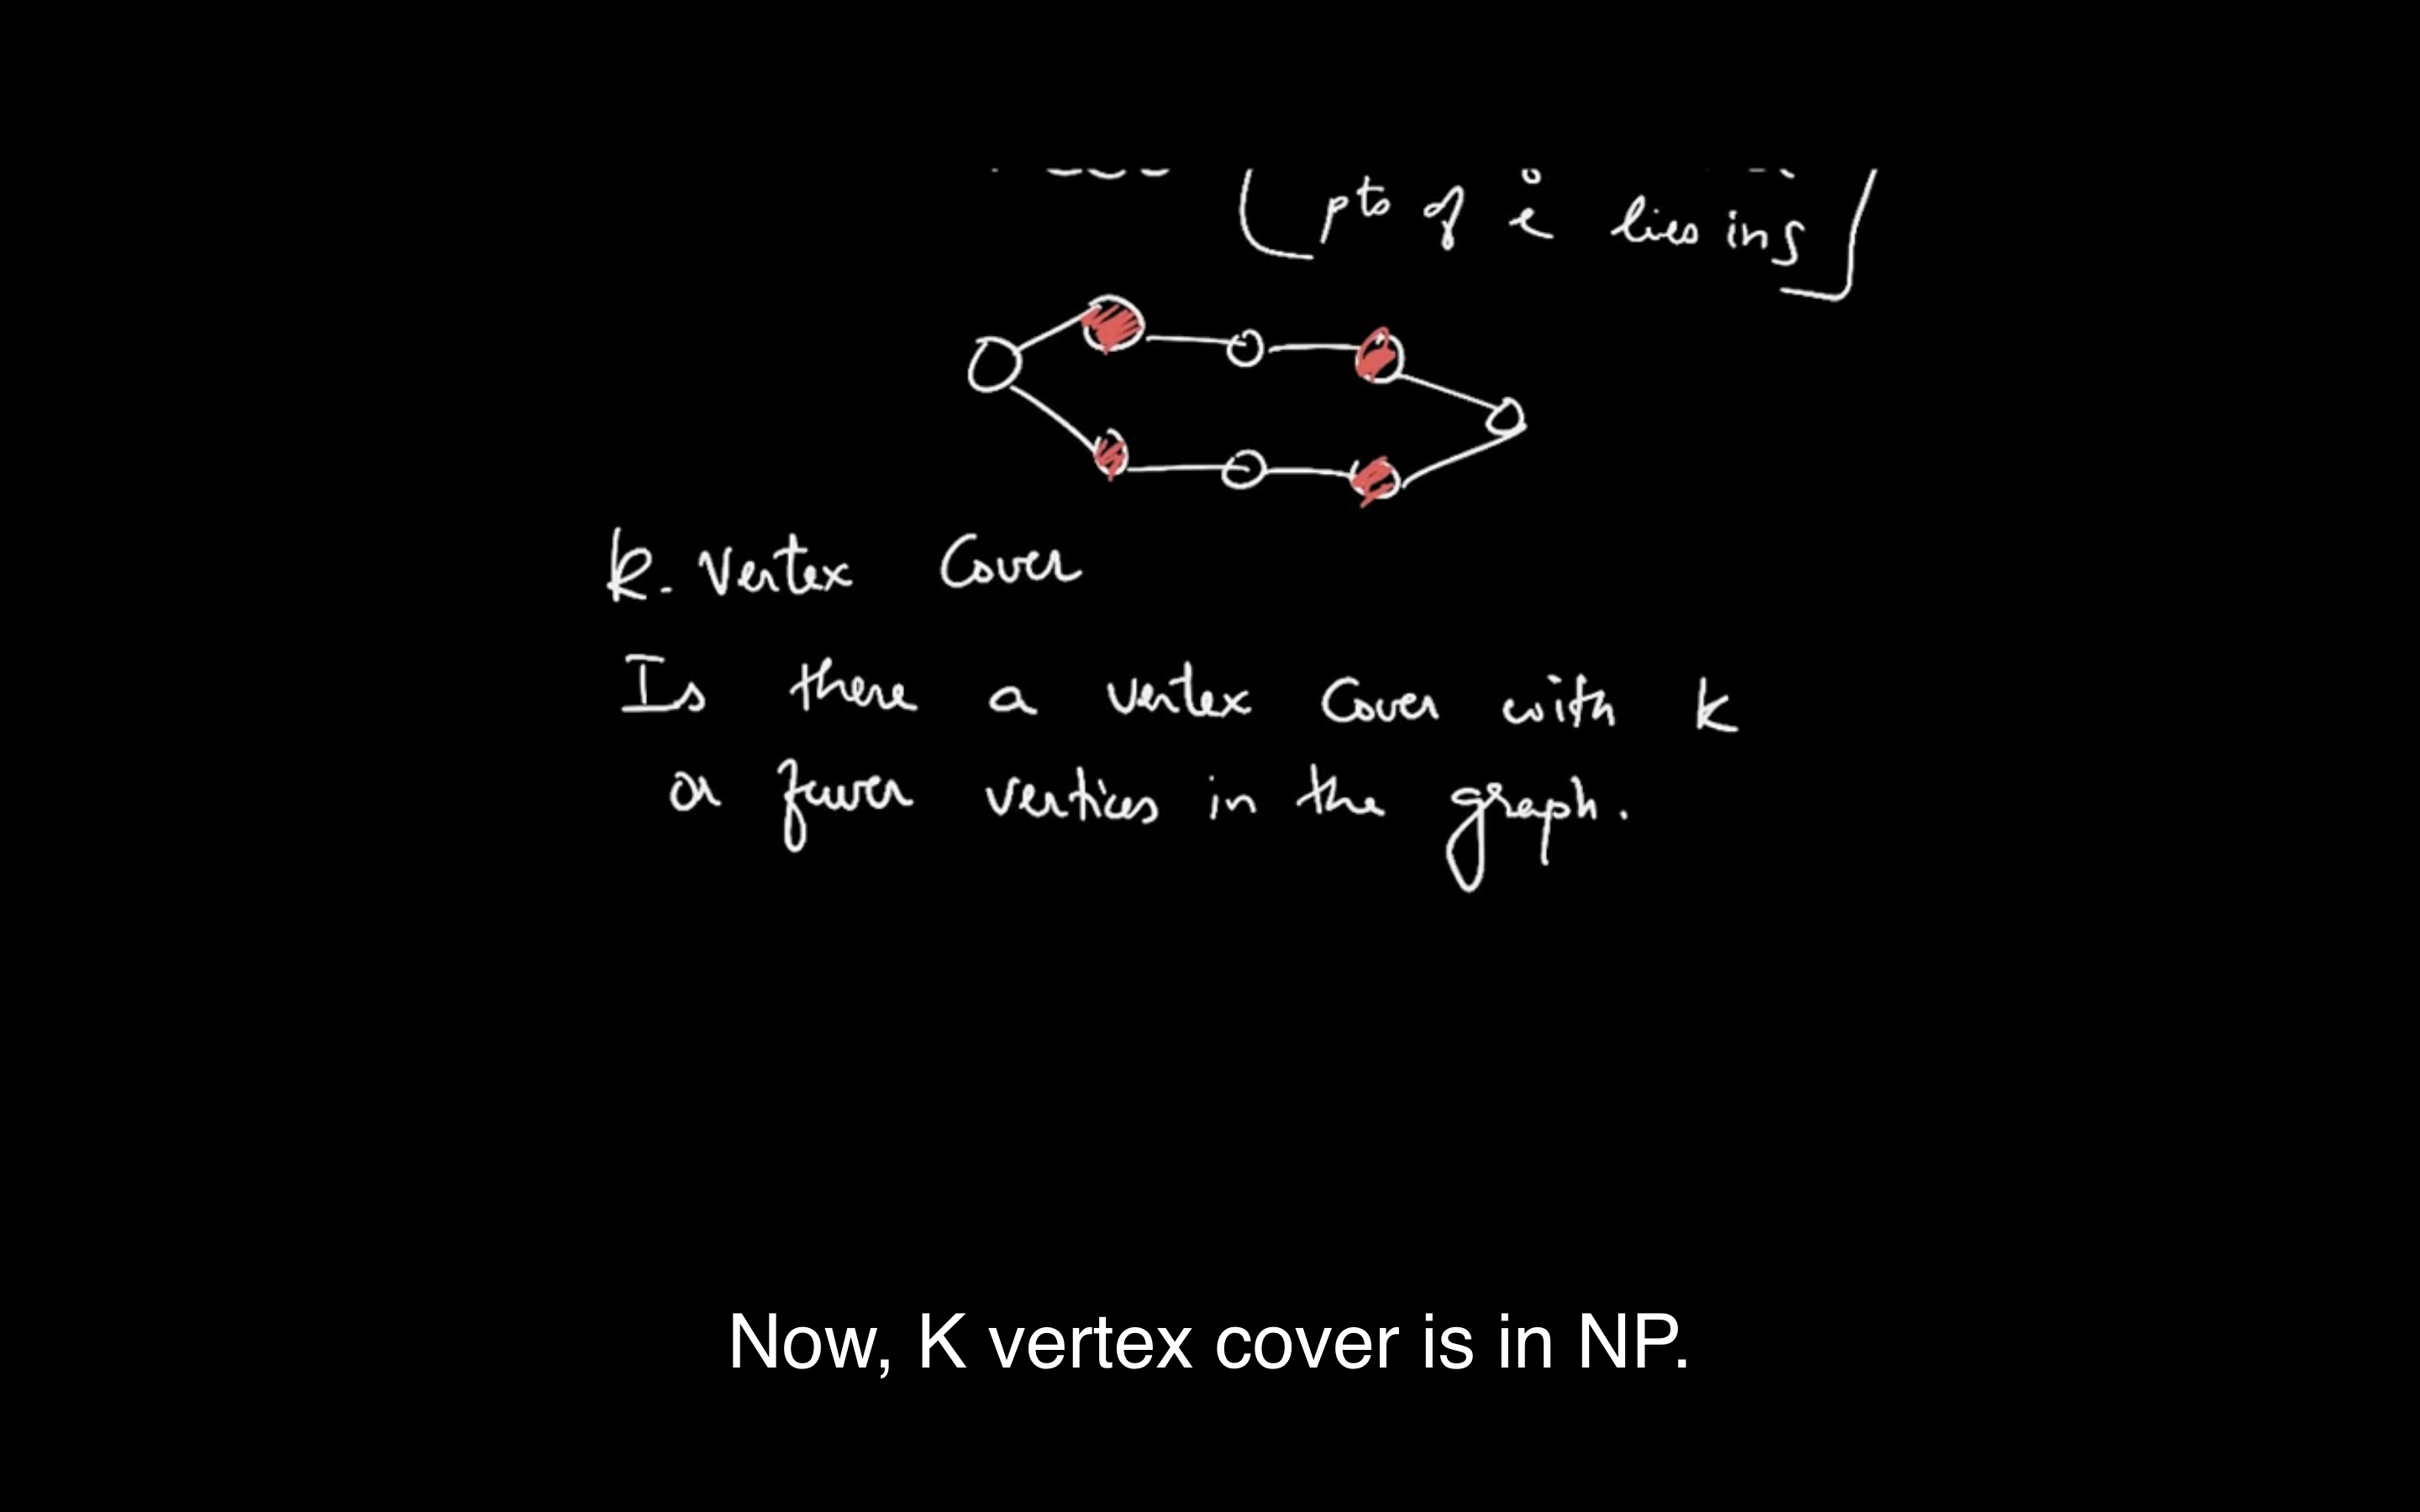 pts of e lies in S
k. Vertex Cover
Is there a vertex cover with k
or fewer vertices in the graph.
Now, K vertex cover is in NP.